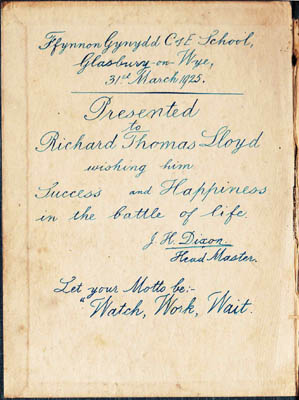 Ffynnon Gynydd C of E School,
Glasbury-on-Wye,
31st March 1925.
Presented
to
Richard Thomas Lloyd
wishing him
Success and Happiness
in the battle of life.
J. H. Dixon,
Head Master.
Let your Motto be:-
"Watch, Work, Wait.